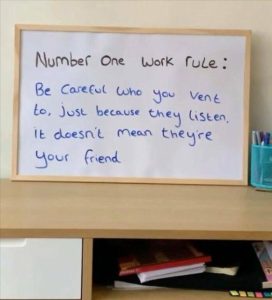 Number One work rule:
Be Careful who you vent
to, just because they listen,
it doesn't mean they're
your friend